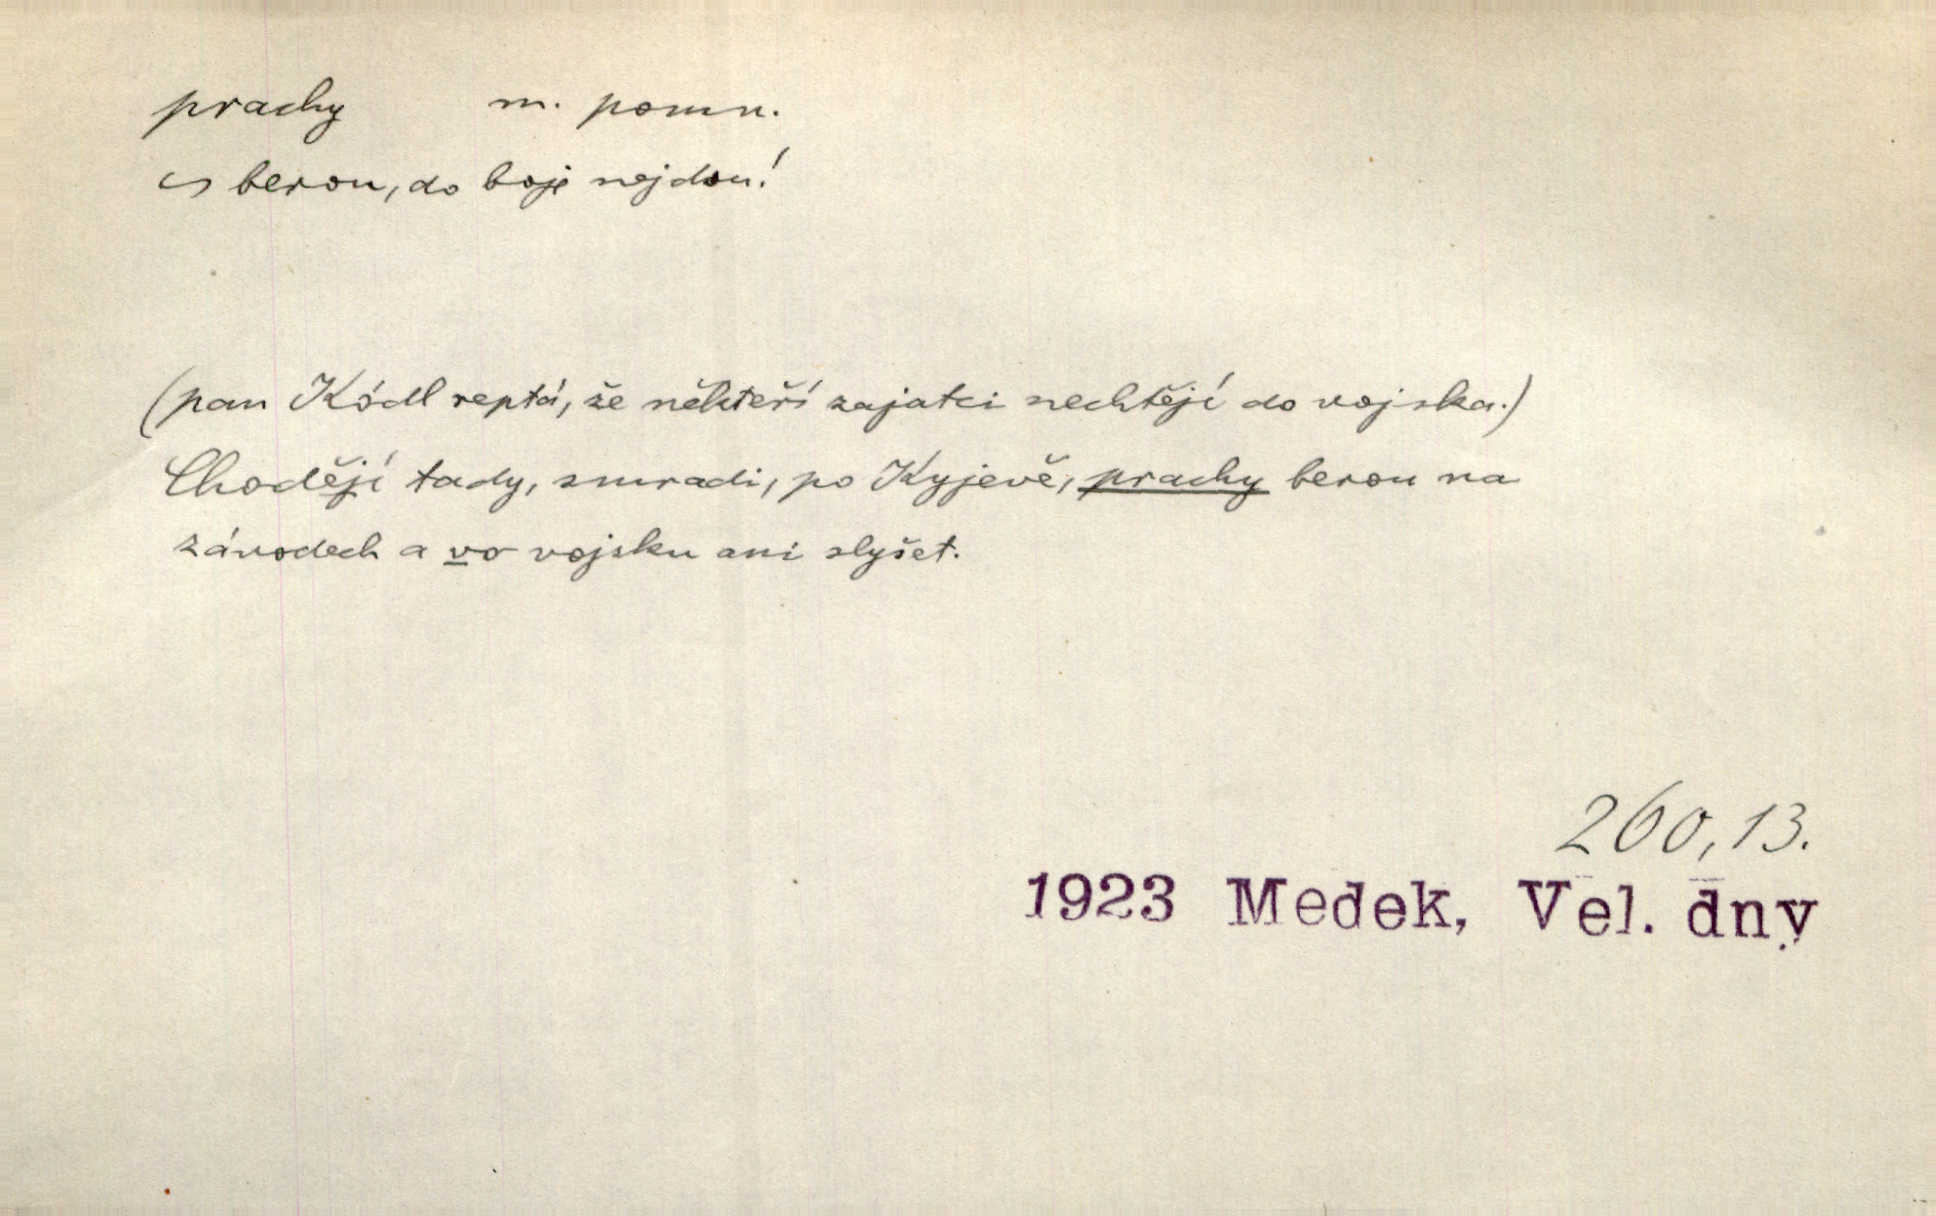 prachy m. pomn.
∽ berou, do boje nejdou!
(pan Kódl reptá, že někteří zajatci nechtějí do vojska.)
Chodějí tady, smradi, po Kyjevě, prachy berou na
závodech a vo vojsku ani slyšet.
260,13.
1923 Medek, Vel. dny